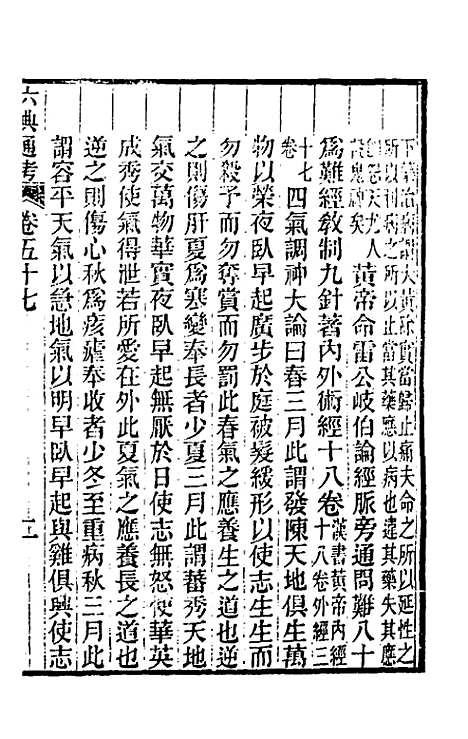 治病謂大黃除實當歸止痛夫命之所以延性之
所以利病之所以止當其藥應以病也違其藥失其應
怨天尤人
鬼神矣
黃帝命雷公岐伯論經脈旁通問難八十
爲難經敎制九針著內外術經十八卷
漢書黃帝內經
十八卷外經三
十七
卷
四氣調神大論曰春三月此謂發陳天地俱生萬
物以榮夜臥早起廣步於庭被髮緩形以使志生生而
勿殺予而勿奪賞而勿罰此春氣之應養生之道也逆
之則傷肝夏爲寒變奉長者少夏三月此謂蕃秀天地
氣交萬物華實夜臥早起無厭於日使志無怒使華英
成秀使氣得泄若所愛在外此夏氣之應養長之道也
逆之則傷心秋爲痎瘧奉收者少冬至重病秋三月此
謂容平天氣以急地氣以明早臥早起與雞俱興使志
六典通考
卷五十七